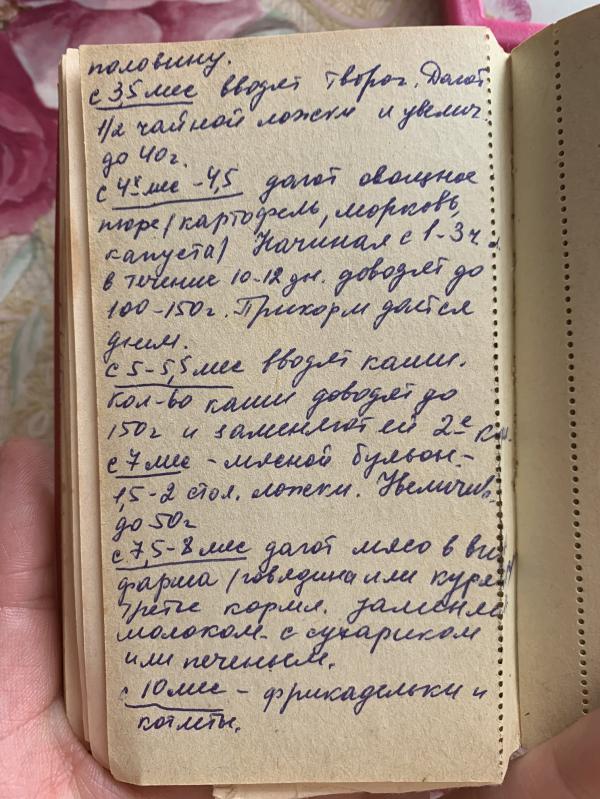 половину.
с 3,5 мес вводят творог. Дают
1/2 чайной ложки и увелич.
до 40г.
с 4х мес - 4,5 дают овощное
пюре (картофель, морковь,
капуста) Начиная с 1-3 ч.
в течение 10-12 дн. доводят до
100-150г. Прикорм дается
днем.
с 5-5,5 мес вводят каши.
Кол-во каши доводят до
150г и заменяют ей 2е
с 7 мес - мясной бульон -
1,5-2 стол. ложки. Увеличив.
до 50г
с 7,5-8 мес дают мясо в
фарша (говядина или
третье кормл.
молоком с сухариком
или печеньем.
с 10 мес - фрикадельки и
котлеты.